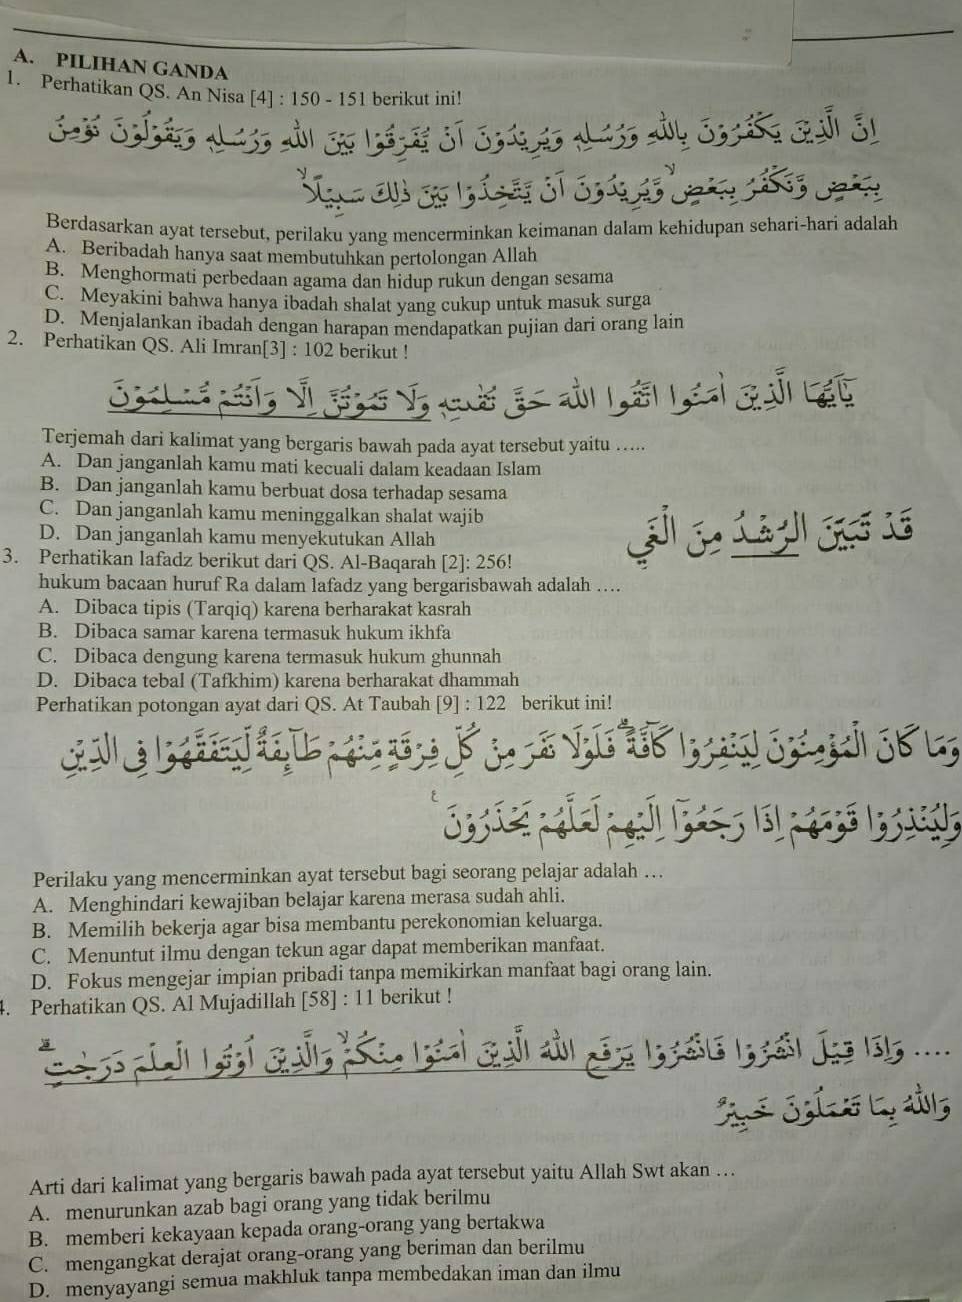 A. PILIHAN GANDA
1. Perhatikan QS. An Nisa [4] : 150 - 151 berikut ini!
اِنَّ الَّذِيْنَ يَكْفُرُوْنَ بِاللّٰهِ وَرُسُلِهٖ وَيُرِيْدُوْنَ اَنْ يُّفَرِّقُوْا بَيْنَ اللّٰهِ وَرُسُلِهٖ وَيَقُوْلُوْنَ نُؤْمِنُ
بِبَعْضٍ وَّنَكْفُرُ بِبَعْضٍۙ وَّيُرِيْدُوْنَ اَنْ يَّتَّخِذُوْا بَيْنَ ذٰلِكَ سَبِيْلًاۙ
Berdasarkan ayat tersebut, perilaku yang mencerminkan keimanan dalam kehidupan sehari-hari adalah
A. Beribadah hanya saat membutuhkan pertolongan Allah
B. Menghormati perbedaan agama dan hidup rukun dengan sesama
C. Meyakini bahwa hanya ibadah shalat yang cukup untuk masuk surga
D. Menjalankan ibadah dengan harapan mendapatkan pujian dari orang lain
2. Perhatikan QS. Ali Imran[3] : 102 berikut !
يٰٓاَيُّهَا الَّذِيْنَ اٰمَنُوا اتَّقُوا اللّٰهَ حَقَّ تُقٰىتِهٖ وَلَا تَمُوْتُنَّ اِلَّا وَاَنْتُمْ مُّسْلِمُوْنَ
Terjemah dari kalimat yang bergaris bawah pada ayat tersebut yaitu …..
A. Dan janganlah kamu mati kecuali dalam keadaan Islam
B. Dan janganlah kamu berbuat dosa terhadap sesama
C. Dan janganlah kamu meninggalkan shalat wajib
D. Dan janganlah kamu menyekutukan Allah
قَدْ تَّبَيَّنَ الرُّشْدُ مِنَ الْغَيِّ
3. Perhatikan lafadz berikut dari QS. Al-Baqarah [2]: 256!
hukum bacaan huruf Ra dalam lafadz yang bergarisbawah adalah ….
A. Dibaca tipis (Tarqiq) karena berharakat kasrah
B. Dibaca samar karena termasuk hukum ikhfa
C. Dibaca dengung karena termasuk hukum ghunnah
D. Dibaca tebal (Tafkhim) karena berharakat dhammah
Perhatikan potongan ayat dari QS. At Taubah [9] : 122 berikut ini!
وَمَا كَانَ الْمُؤْمِنُوْنَ لِيَنْفِرُوْا كَاۤفَّةًۗ فَلَوْلَا نَفَرَ مِنْ كُلِّ فِرْقَةٍ مِّنْهُمْ طَاۤىِٕفَةٌ لِّيَتَفَقَّهُوْا فِى الدِّيْنِ
وَلِيُنْذِرُوْا قَوْمَهُمْ اِذَا رَجَعُوْٓا اِلَيْهِمْ لَعَلَّهُمْ يَحْذَرُوْنَ ع
Perilaku yang mencerminkan ayat tersebut bagi seorang pelajar adalah …
A. Menghindari kewajiban belajar karena merasa sudah ahli.
B. Memilih bekerja agar bisa membantu perekonomian keluarga.
C. Menuntut ilmu dengan tekun agar dapat memberikan manfaat.
D. Fokus mengejar impian pribadi tanpa memikirkan manfaat bagi orang lain.
4. Perhatikan QS. Al Mujadillah [58] : 11 berikut !
.... وَاِذَا قِيْلَ انْشُزُوْا فَانْشُزُوْا يَرْفَعِ اللّٰهُ الَّذِيْنَ اٰمَنُوْا مِنْكُمْۙ وَالَّذِيْنَ اُوْتُوا الْعِلْمَ دَرَجٰتٍۗ
وَاللّٰهُ بِمَا تَعْمَلُوْنَ خَبِيْرٌ
Arti dari kalimat yang bergaris bawah pada ayat tersebut yaitu Allah Swt akan …
A. menurunkan azab bagi orang yang tidak berilmu
B. memberi kekayaan kepada orang-orang yang bertakwa
C. mengangkat derajat orang-orang yang beriman dan berilmu
D. menyayangi semua makhluk tanpa membedakan iman dan ilmu